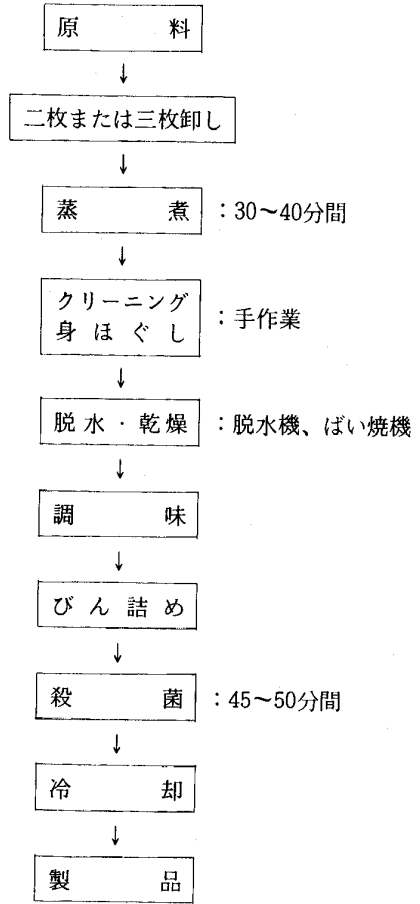 原料
↓
二枚または三枚卸し
↓
蒸煮 :30~40分間
↓
クリーニング
身ほぐし :手作業
↓
脱水・乾燥 :脱水機、ばい焼機
↓
調味
↓
びん詰め
↓
殺菌 :45~50分間
↓
冷却
↓
製品